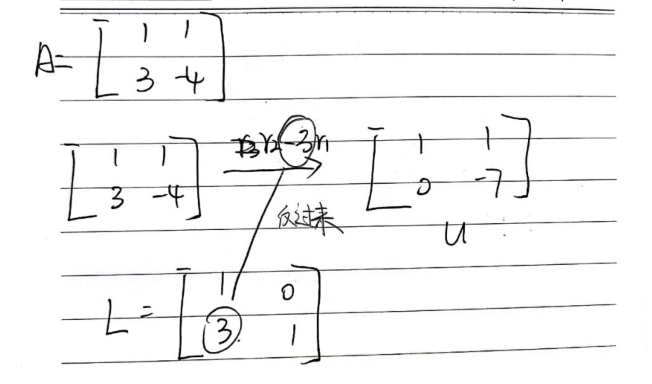 A= [ 1 1
3 -4 ]
[ 1 1
3 -4 ] r2 -3r1 → [ 1 1
0 -7 ]
反过来
U
L = [ 1 0
3 1 ]